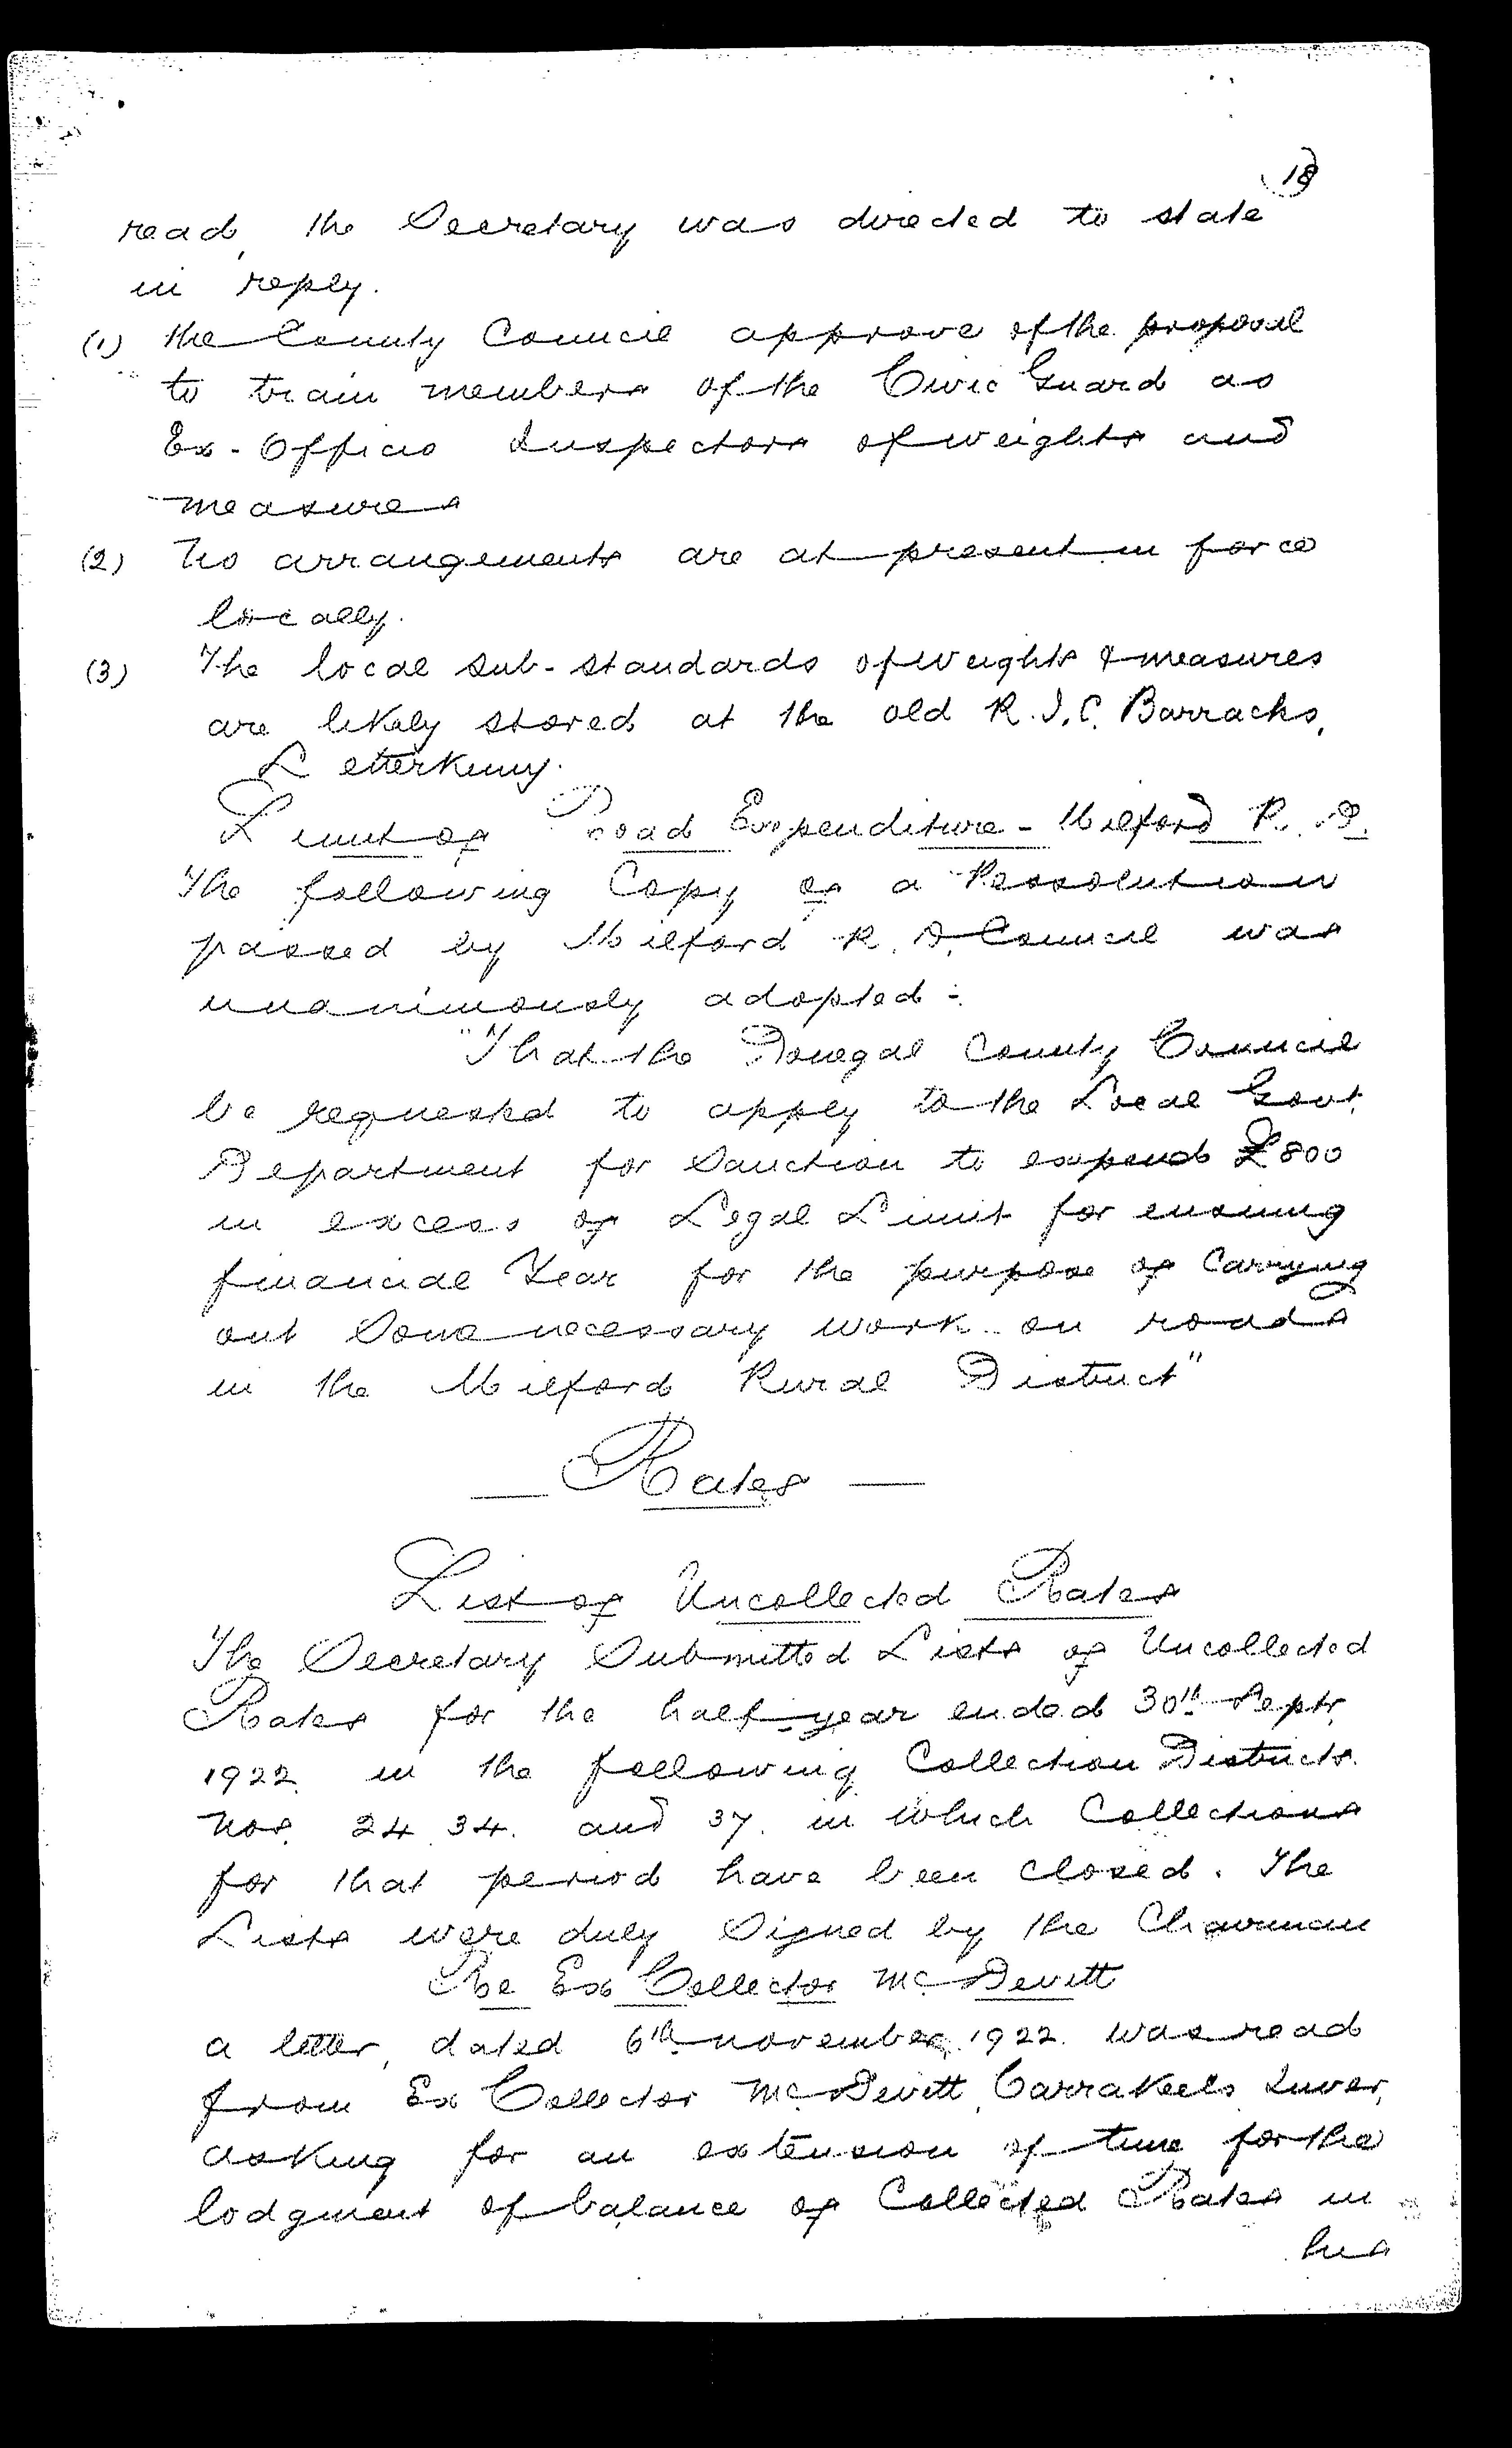 18
read, the Secretary was directed to state
in reply.
(1) the County Council approve of the proposal
to train members of the Civic Guard as
Ex-Officio Inspectors of weights and
measures
(2) No arrangements are at present in force
locally.
(3) The local sub-standards of weights & measures
are likely stored at the old R.I.C. Barracks,
Letterkenny.
Limit of Road Expenditure - Milford R.D.
The following Copy of a Ressolution
passed by Milford R.D. Council was
unanimously adopted :-
"That the Donegal County Council
be requested to apply to the Local Govt.
Department for Sanction to expend £800
in excess of Legal Limit for ensuing
financial Year for the purpose of Carrying
out Some necessary work on roads
in the Milford Rural District"
Rates
List of Uncollected Rates
The Secretary Submitted Lists of Uncollected
Rates for the half-year ended 30th Septr.
1922 in the following Collection Districts.
Nos. 24. 34. and 37. in which Collections
for that period have been closed. The
Lists were duly Signed by the Chairman
Re Ex Collector McDevitt
a letter, dated 6th november, 1922. was read
from Ex Collector McDevitt, Carrakeels Inver,
asking for an extension of time for the
lodgment of balance of Collected Rates in
his